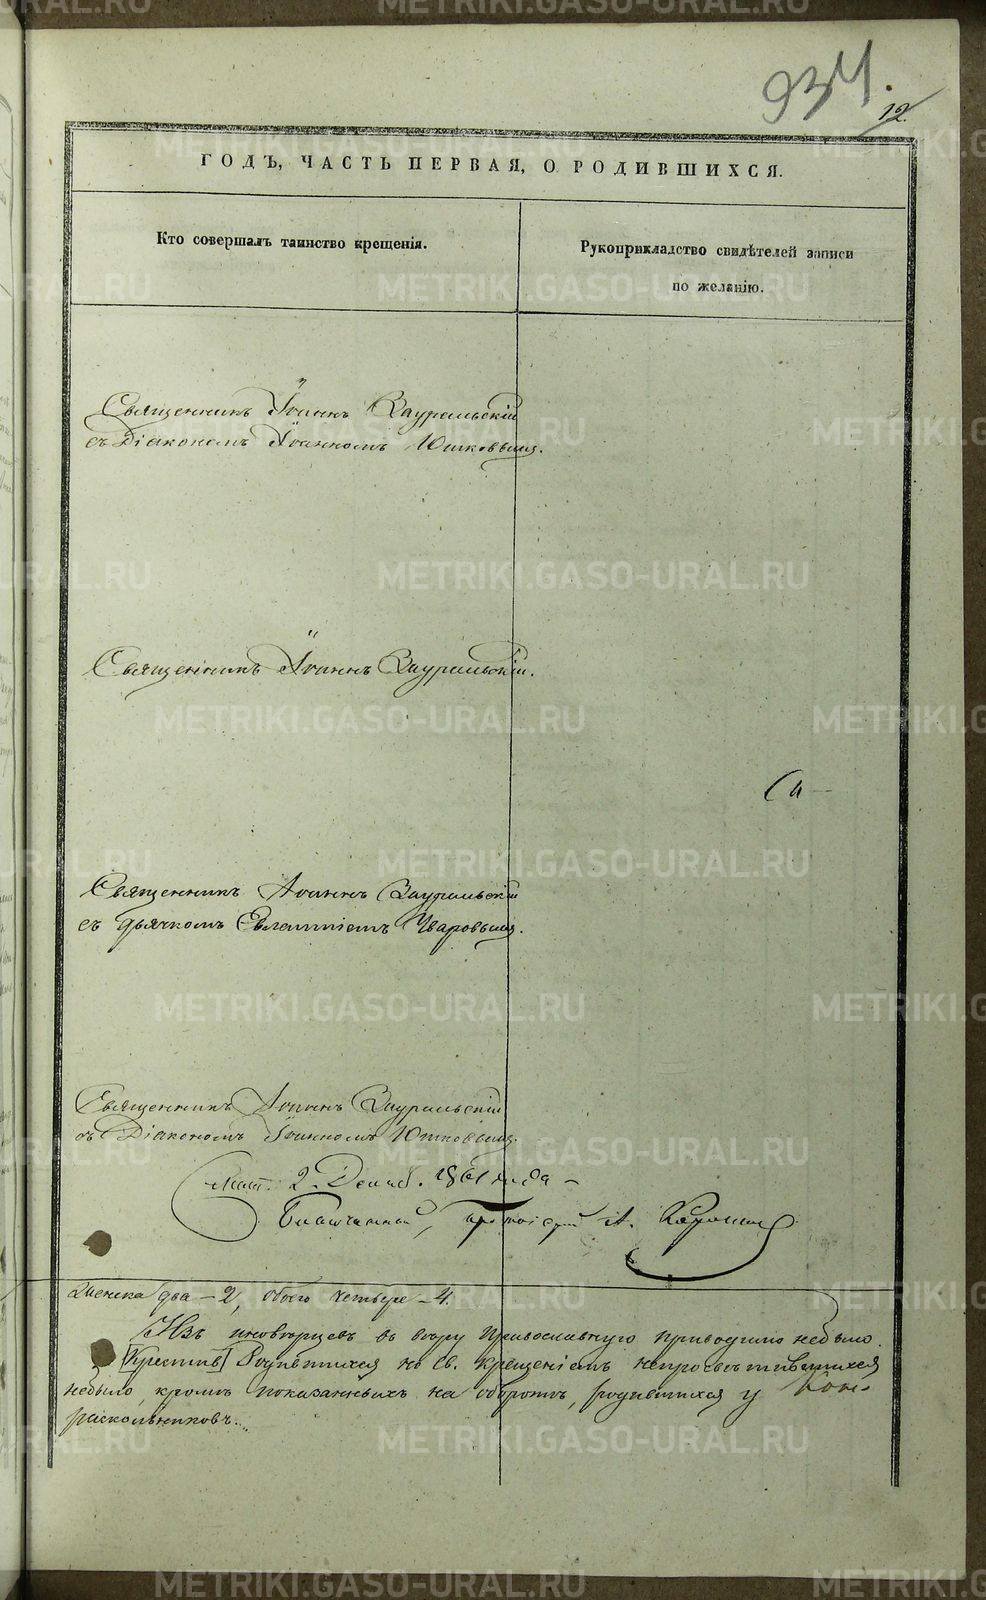 934.
12.
ГОДЪ, ЧАСТЬ ПЕРВАЯ, О РОДИВШИХСЯ.
Кто совершалъ таинство крещенія.
Рукоприкладство свидѣтелей записи
по желанію.
Священникъ Іоаннъ Зауральскій
съ Діакономъ Іоанномъ Юшковымъ.
Священникъ Іоаннъ Зауральскій.
Священникъ Іоаннъ Зауральскій
съ дьячкомъ Евлампіемъ Уваровымъ.
Священникъ Іоаннъ Зауральскій
съ Діакономъ Іоанномъ Юшковымъ.
2. Декаб. 1861 года
Благочинный, протоіерей А.
женска два – 2, обоего четыре – 4.
Изъ иновѣрцевъ въ вѣру Православную приводимо небыло.
Родившихся но Св. крещеніемъ непросвѣтившихся
небыло, кромѣ показанныхъ на оборотѣ, родившихся у
раскольниковъ.
METRIKI.GASO-URAL.RU